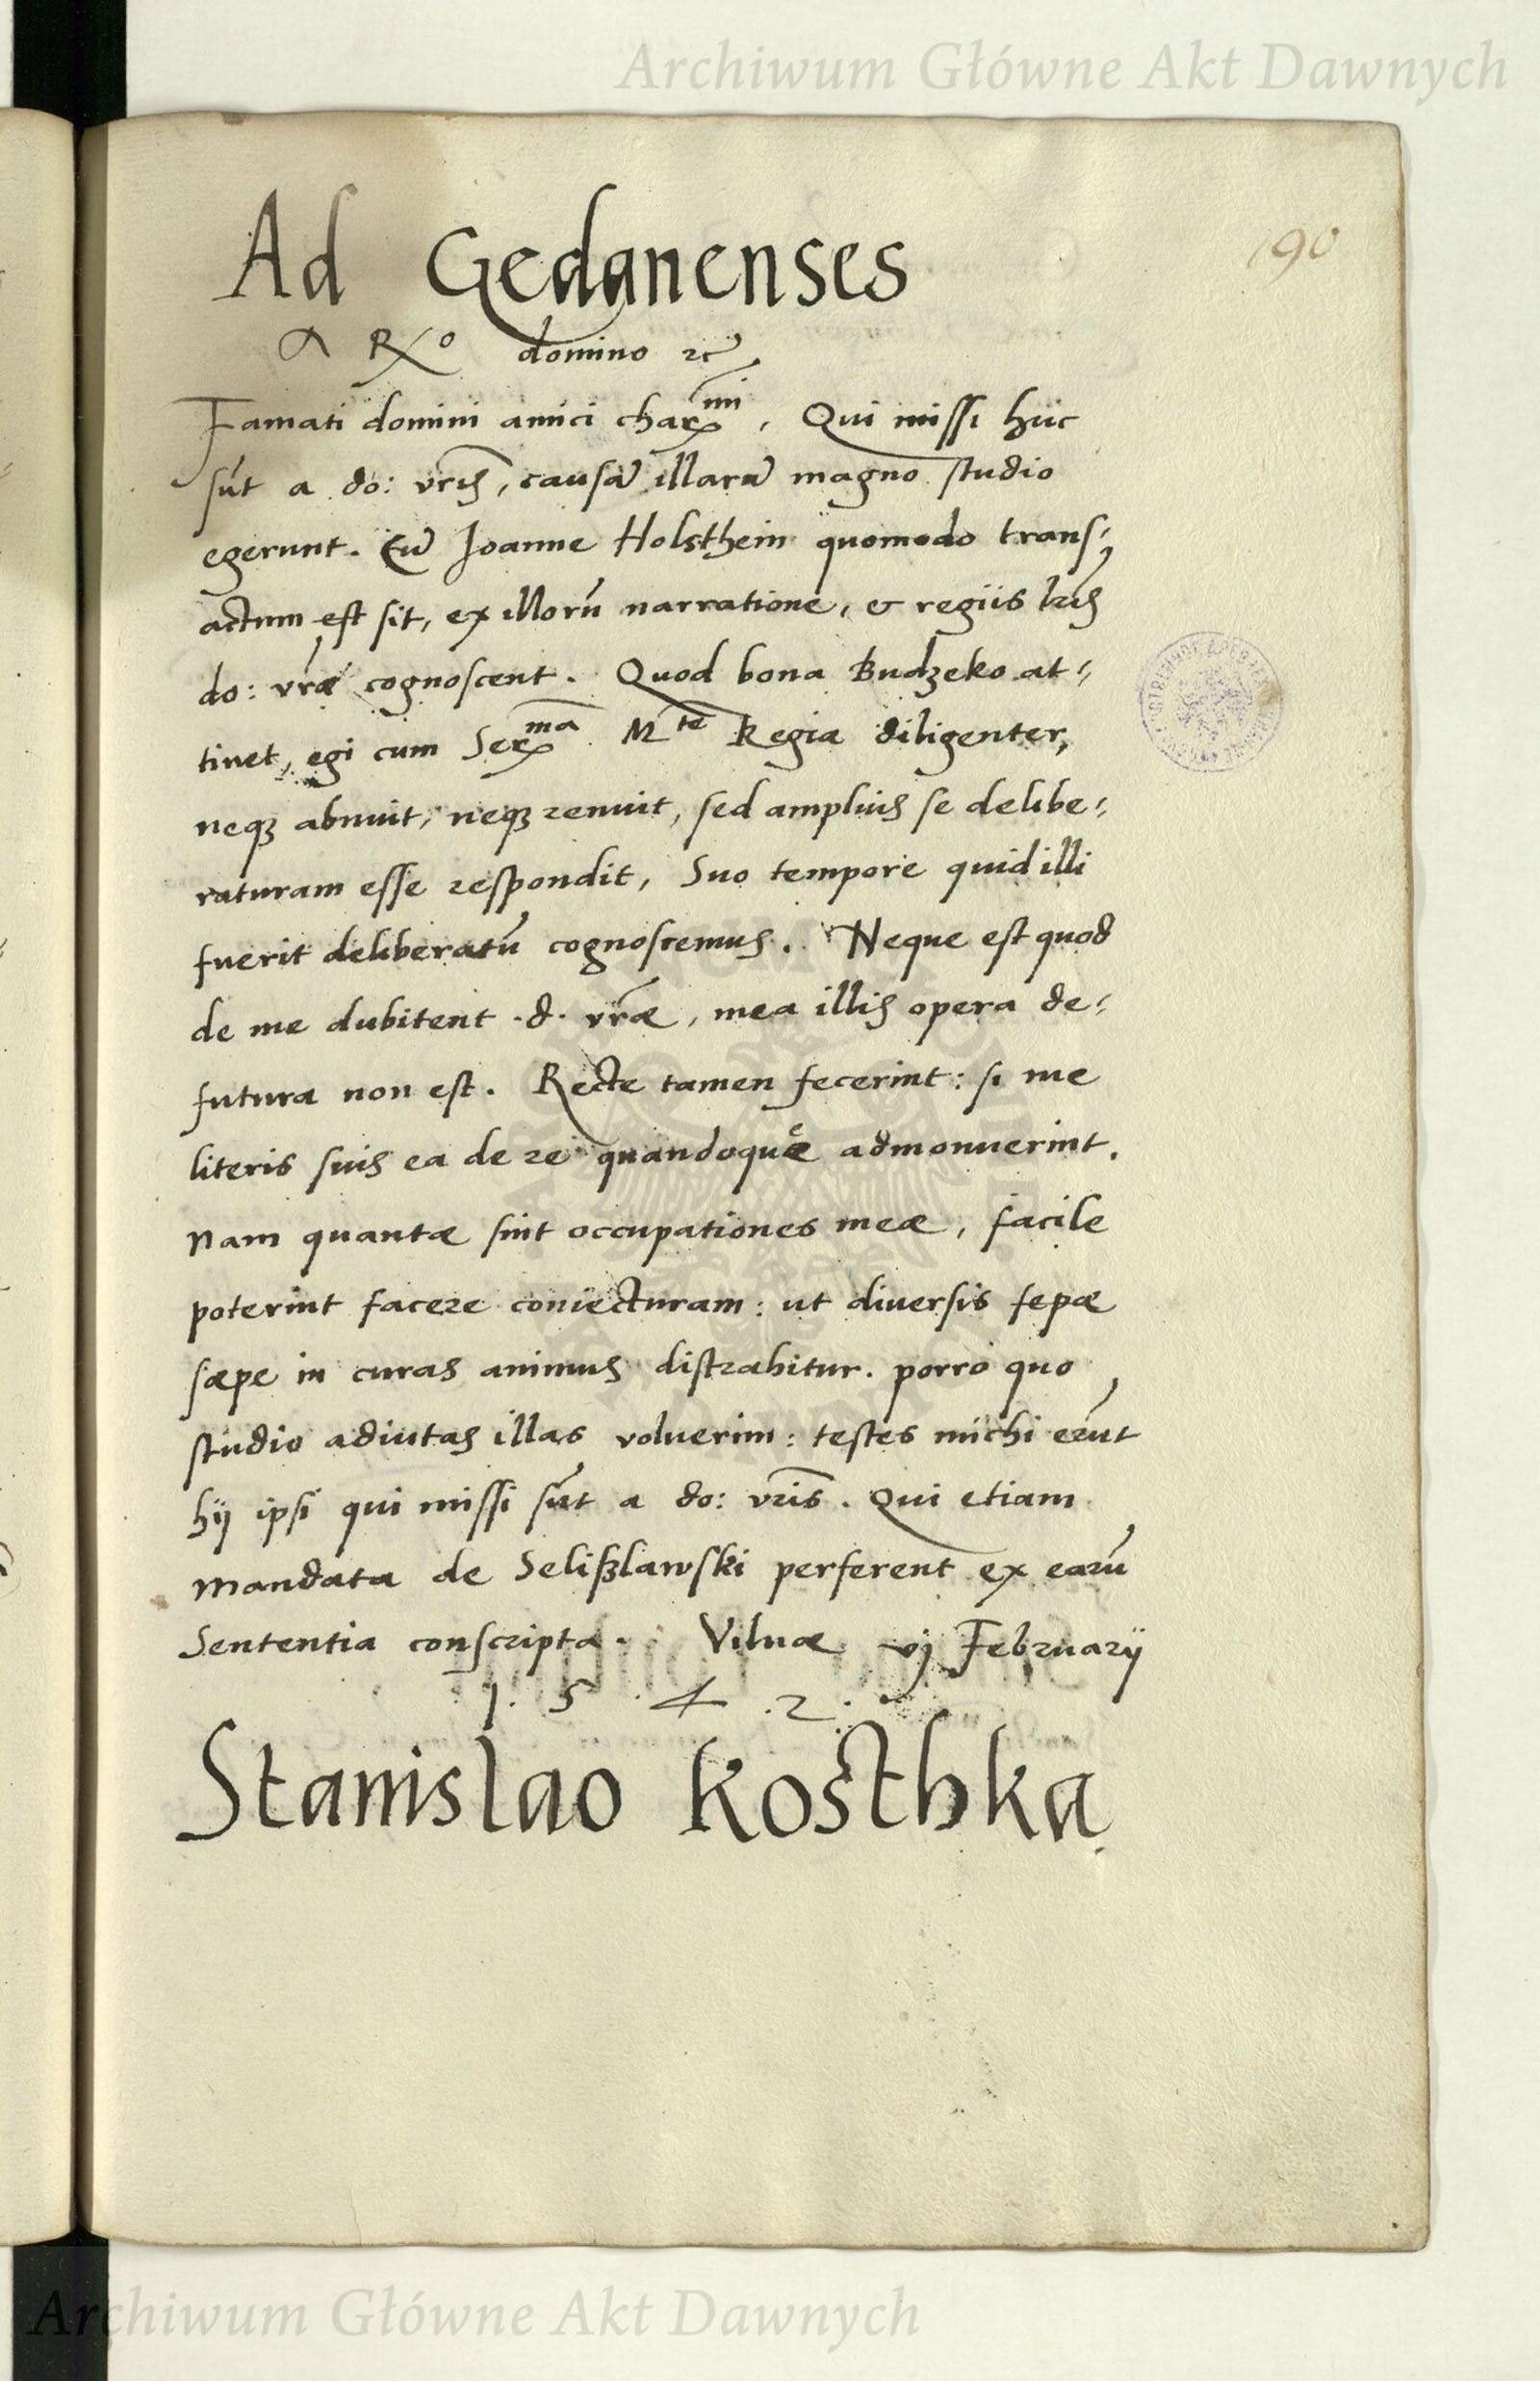 Archiwum Główne Akt Dawnych
190
Ad Gedanenses
A Rx⁰ domino ⁊c̃
Famati domini amici charx^mi, Qui missi huc
sũt a do: vr̃is, causã illarũ magno studio
egerunt. Cũ Joanne Holsthein quomodo trans⸗
actum est sit, ex illorũ narratione, & regiis lr̃is
do: vr̃æ cognoscent. Quod bona Budzeko at⸗
tinet, egi cum Serx^ma M^te Regia diligenter,
neqꝫ abnuit, neqꝫ renuit, sed amplius se delibe⸗
raturam esse respondit, Suo tempore quid illi
fuerit deliberatũ cognoscemus. Neque est quod
de me dubitent .d. vr̃æ, mea illis opera de⸗
futura non est. Recte tamen fecerint: si me
literis suis ea de re quandoquæ admonuerint.
Nam quantæ sint occupationes meæ, facile
poterint facere coniecturam: ut diversis sepæ
sæpe in curas animus distrahitur. porro quo
studio adiutas illas voluerim: testes michi erũt
hij ipsi qui missi sũt a do: vr̃is. Qui etiam
mandata de Selißlawski perferent ex earũ
Sententia conscripta. Vilnæ vj Februarij
1. 5 4 .2.
Stanislao Kosthka
Archiwum Główne Akt Dawnych